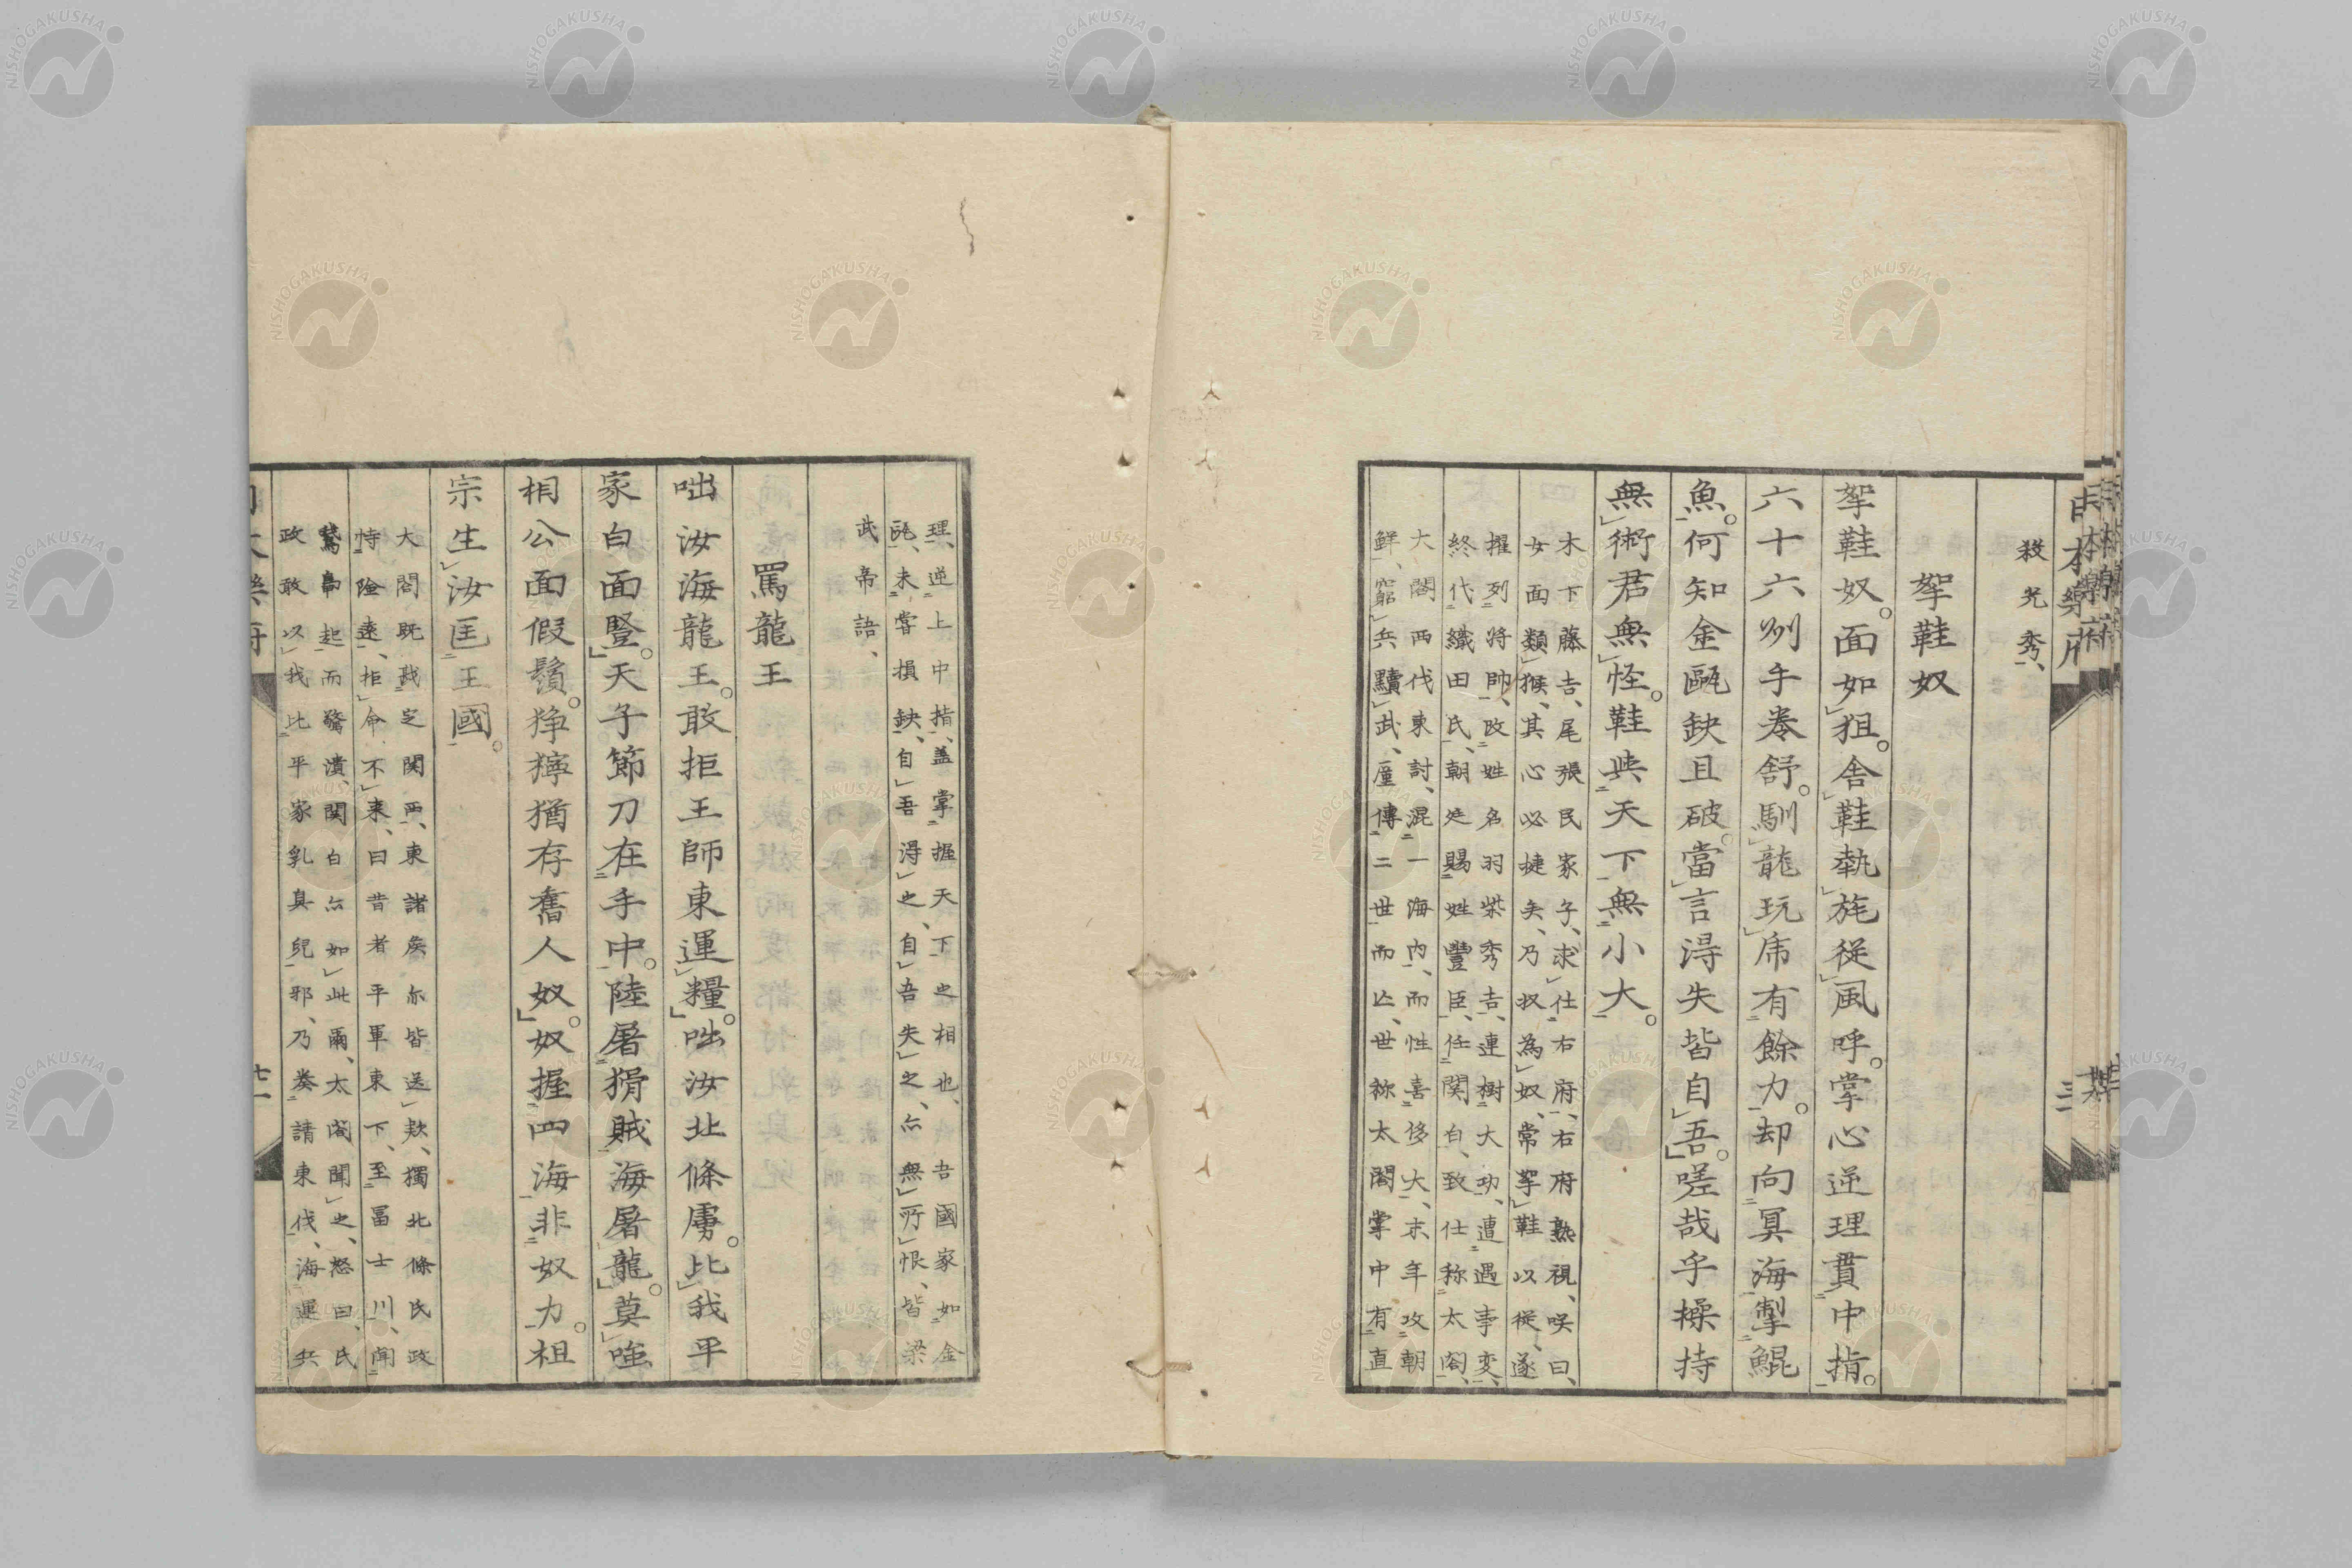 殺光秀、
挐鞋奴
挐鞋奴。面如狙。舍鞋執旄從風呼。掌心逆理貫中指。
六十六州手卷舒。馴龍玩虎有餘力。却向冥海掣鯤
魚。何知金甌缺且破。當言得失皆自吾。嗟哉乎操持
無術君無怪。鞋與天下無小大。
木下藤吉、尾張民家子、求仕右府、右府熟視、咲曰、
女面類猴、其心必捷矣、乃奴為奴、常挐鞋以從、遂
擢列將帥、改姓名羽柴秀吉、連樹大功、遭遇事變、
終代織田氏、朝廷賜姓豐臣、任関白、致仕称太閤、
大閤西伐東討、混一海內、而性喜侈大、末年攻朝
鮮、窮兵黷武、僅傳二世而亡、世称太閤掌中有直
理、逆上中指、盖掌握天下之相也、吾國家如金
甌、未嘗損缺、自吾得之、自吾失之、亦無所恨、皆梁
武帝語、
罵龍王
咄汝海龍王。敢拒王師東運糧。咄汝北條虜。比我平
家白面豎。天子節刀在手中。陸屠猾賊海屠龍。莫嗤
相公面假鬚。猙獰猶存舊人奴。奴握四海非奴力。祖
宗生汝匡王國。
大閤既戡定関西、東諸侯亦皆送款、獨北條氏政
恃險遠、拒命不來、曰昔者平軍東下、至富士川、聞
鶩鳥起而驚潰、関白亦如此爾、太閤聞之、怒曰、氏
政敢以我比平家乳臭兒邪、乃奏請東伐、海運兵
日本樂府